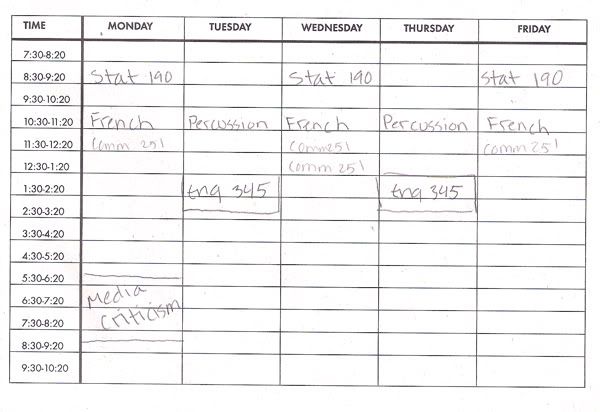 TIME MONDAY TUESDAY WEDNESDAY THURSDAY FRIDAY
7:30-8:20
8:30-9:20 Stat 190 Stat 190 Stat 190
9:30-10:20
10:30-11:20 French Percussion French Percussion French
11:30-12:20 Comm 251 Comm251 Comm 251
12:30-1:20 Comm 251
1:30-2:20 Eng 345 Eng 345
2:30-3:20
3:30-4:20
4:30-5:20
5:30-6:20
6:30-7:20 Media
7:30-8:20 Criticism
8:30-9:20
9:30-10:20